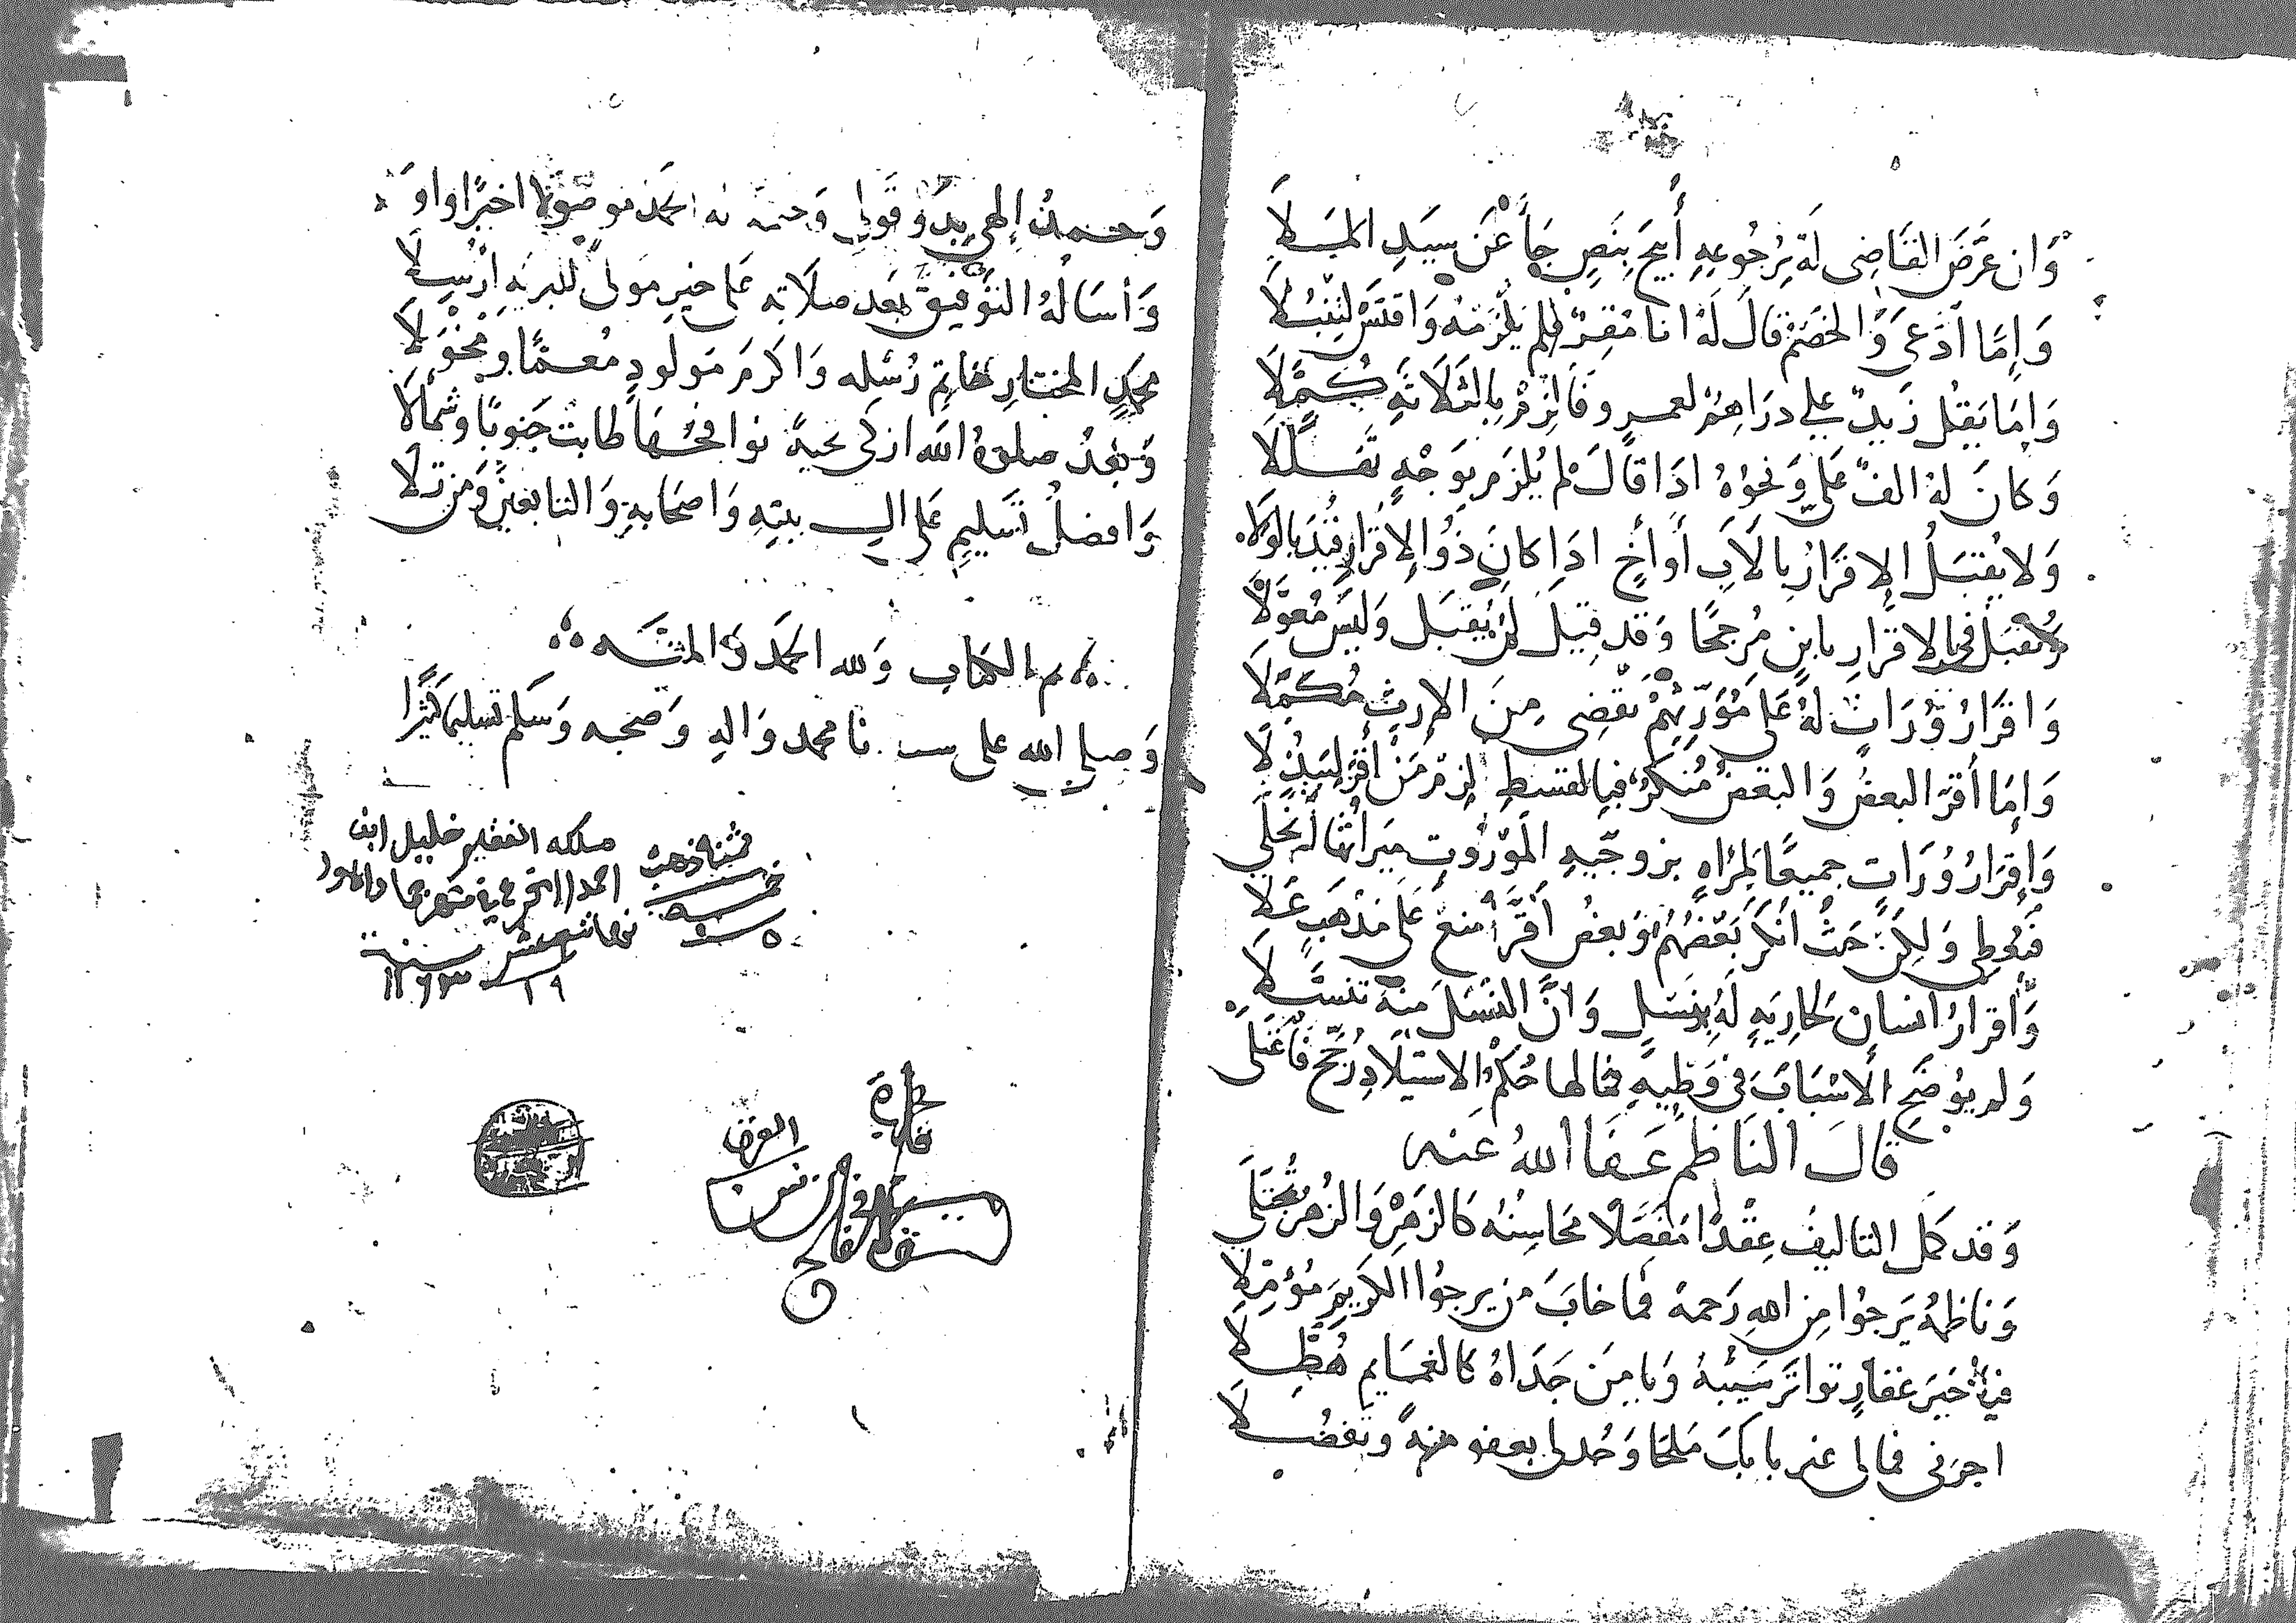 وَان عَرَّضَ القَاضِى لَهُ بِرُجُوعِهِ أُبِيحَ بِنَصٍ جَاَ عَنْ سَيِدِ المَلَا
وَإمَّا ادَّعَى وَالخَصْمُ قَالَ لَهُ انا مُقِرٌ فلم يَلْزَمْهُ
وَإمَا يَقُل زَيدٌ علي دَرَاهِمُ لعمرو فَألزِمْ بِالثَلَاثَةِ كُمَّلَا
وَكانَ لهُ الفٌ عَليّ وَنحوُهُ اذَا قَالَ لم يُلزَم بِوَجْهٍ
وَلا يُقبَلُ الإقرَارُ بِالأبِ أو أخٍ اذَا كانَ ذُوا الإقرَارِ قُيِّدَ بِالوَلَا
وَيُقبَلُ في الاقرارِ بابنٍ مُرجحًا وَقد قِيلَ لن يُقبَل وَليسَ مُعوَّلًا
وَاقرَارُ وُرَاثٍ لهُ عَلى مُوَرِّثِهُمْ يَقْضِى مِنَ الإرثِ مُكَمَّلَا
وَإمَا أقرَّ البعضُ وَالبَعضُ مُنكرٌ فبِالقسطِ لزم مَن أقرَّ
وَإقرَارُ وُرَاثٍ جميعًا لمرأةٍ بزوجيهِ المَوْرُوثِ مِيرَاثُها
فتُعطى وَلكِن حَيثُ أنكرَ بَعْضُهُمْ وَبعضُ أقَرَّ امنع عَلى مَذْهَبٍ عَلا
وَأقرارُ انسانٍ لجاريَةٍ لَهُ بِنَسلٍ وَأنَّ النَسْلَ مِنهُ تَنسَّلَا
وَلم يوُضح الأسْبَابَ في وَطيِهِ فما لها حُكمُ الاستيلَادِ رُجِّح
قالَ النَاظِم عَفَا اللهُ عَنه
وَقد كمل التاليفُ عِقْدًا مُفَصَّلًا محَاسِنُه كالزَهرِ وَالزُهرِ تُجْتَلَى
وَناظمُهُ يَرجُوا مِن اللهِ رَحمة فما خابَ من يرجُوا الكريمَ مُؤمِّلَا
فيا خَيرَ غفارٍ تواتَر سَيْبُهُ وَيا مِن جَدَاهُ كالغمَايم هُطَّلَا
اجرني فمالى غير بابكَ مَلجَا وَجُد لى بعفو منه وَتفضُّلَا
وَحمدُ إلهى بدؤ قولى وَختمه
وَأسَالهُ التَوفيقَ بعد صلاته عَلى خيرِ مَولىً للبريهِ ارْسِلَا
محمدٍ المختارِ خاتِم رُسْله وَاكرَمَ مَولودٍ مُعمًّا ومُخْوَلَا
وَبعدُ صلوةُ الله ازكى تحيةً نوافحُهَا طابتْ جَنوبًا وَشَمأَلَا
وَافضلُ تَسليمٍ عَلى الِ بيتِهِ وَاصحَابهِ وَالتابعينَ وَمن تلَا
تم الكتاب وَلله الحَمدُ وَالمنَّه
وَصلى الله على سيدنا محمد وَالهِ وَصَحبه وَسَلم تسليمًا كثيرًا
ملكه الفقير خليل ابن
احمد
سنة ١٢٦٣
ثمنه ذهب
خمسه
٥
١٩